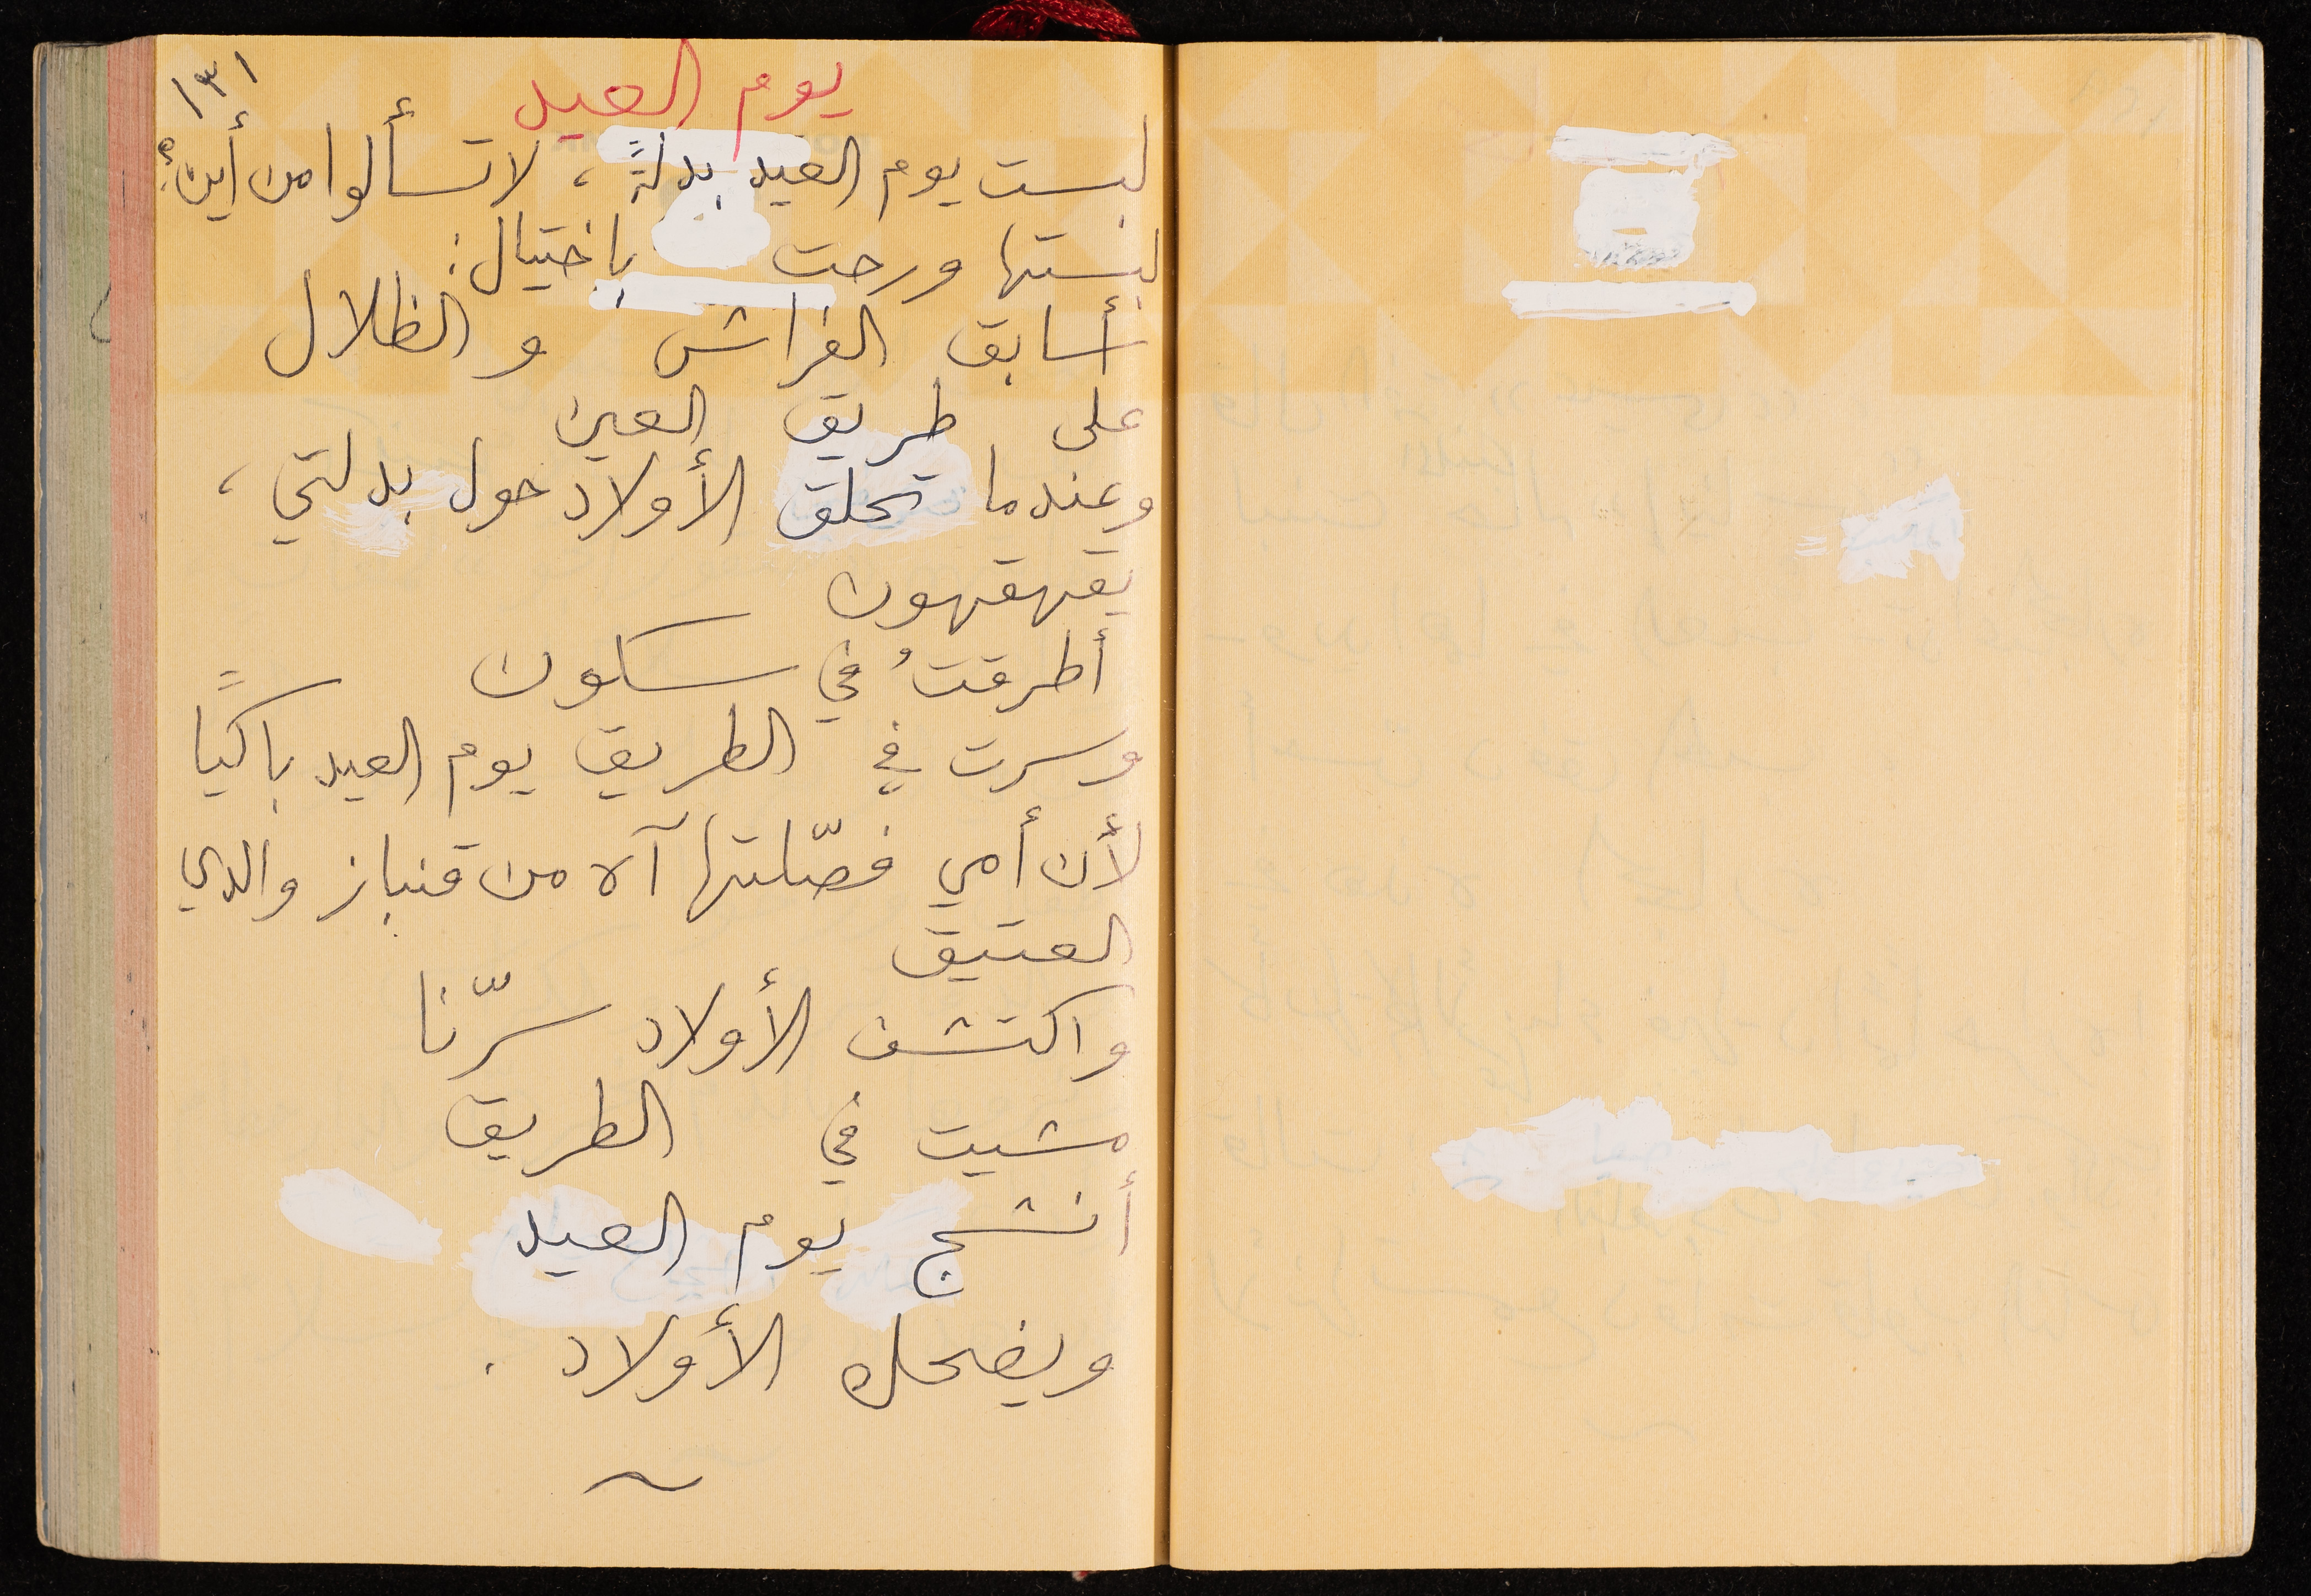 ١٣١
يوم العيد
لبست يوم العيد بدلةً، لا تسألوا من أين؟
لبستها ورحت باختيال:
أسابق الفراش والظلال
على طريق العين
وعندما تحلق الأولاد حول بدلتي،
يقهقهون
أطرقتُ في سكون
وسرت في الطريق يوم العيد باكيًا
لأن أمي فصّلتها آه من قنباز والدي
العتيق
واكتشف الأولاد سرّنا
مشيت في الطريق
أنشج يوم العيد
ويضحك الأولاد.